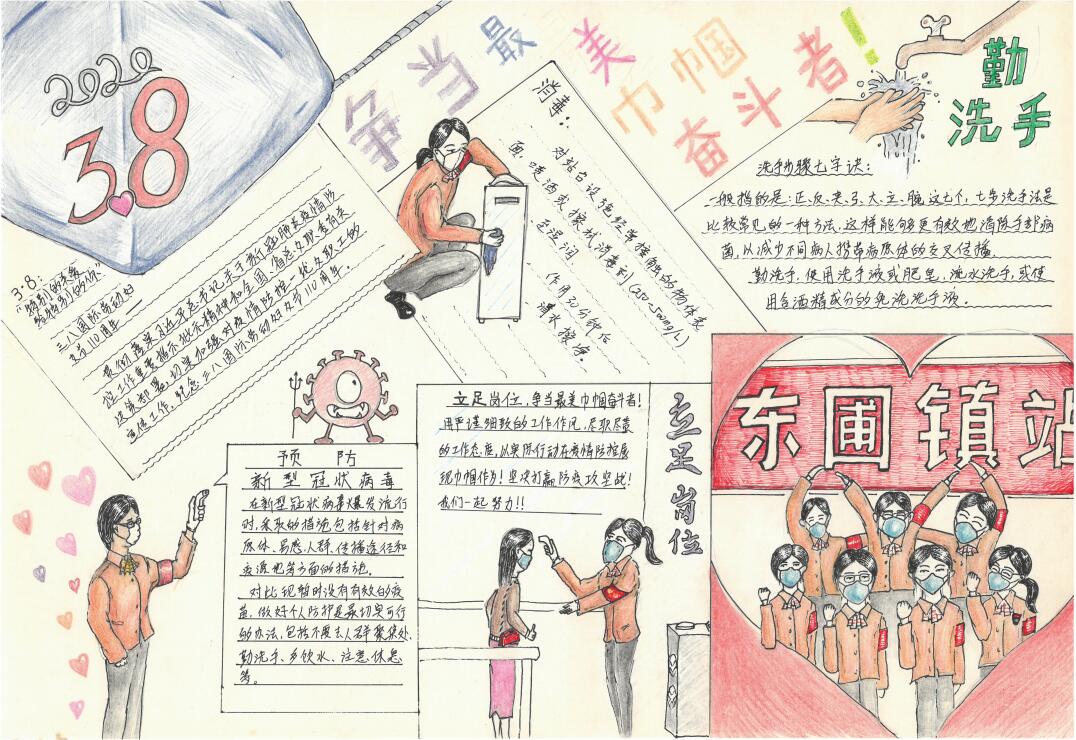 2020
3.8
争当最美巾帼奋斗者!
勤
洗手
洗手步骤七字诀:
一般指的是:正、反、夹、弓、大、立、腕这七个,七步洗手法是
比较常见的一种方法,这样能够更有效地消除手部病
菌,以减少不同病人携带病原体的交叉传播.
勤洗手,使用洗手液或肥皂,流水洗手,或使
用含酒精成分的免洗洗手液.
消毒:
对站台设施经常接触的物体表
面,喷洒或擦拭消毒剂(250-500mg/L)
至湿润 作用30分钟后
清水擦净.
3·8:
"特别的关爱
给特别的你"
三八国际劳动妇
女节110周年
贯彻落实习近平总书记关于新冠肺炎疫情防
控工作重要指示批示精神和全国、省总女职委有关
决策部署,切实加强对疫情防控、优女职工的
宣传工作,纪念三八国际劳动妇女节110周年.
预防
新型冠状病毒
在新型冠状病毒爆发流行
时,采取的措施包括针对病
原体、易感人群、传播途径和
疫源地等方面的措施.
对比现暂时没有有效的疫
苗,做好个人防护是最切实可行
的办法,包括不要去人群聚集处、
勤洗手、多饮水、注意休息
等.
立足岗位,争当最美巾帼奋斗者!
用严谨细致的工作作风,尽职尽责
的工作态度,以实际行动在疫情防控展
现巾帼作为!坚决打赢防疫攻坚战!
我们一起努力!!
立足岗位
东圃镇站